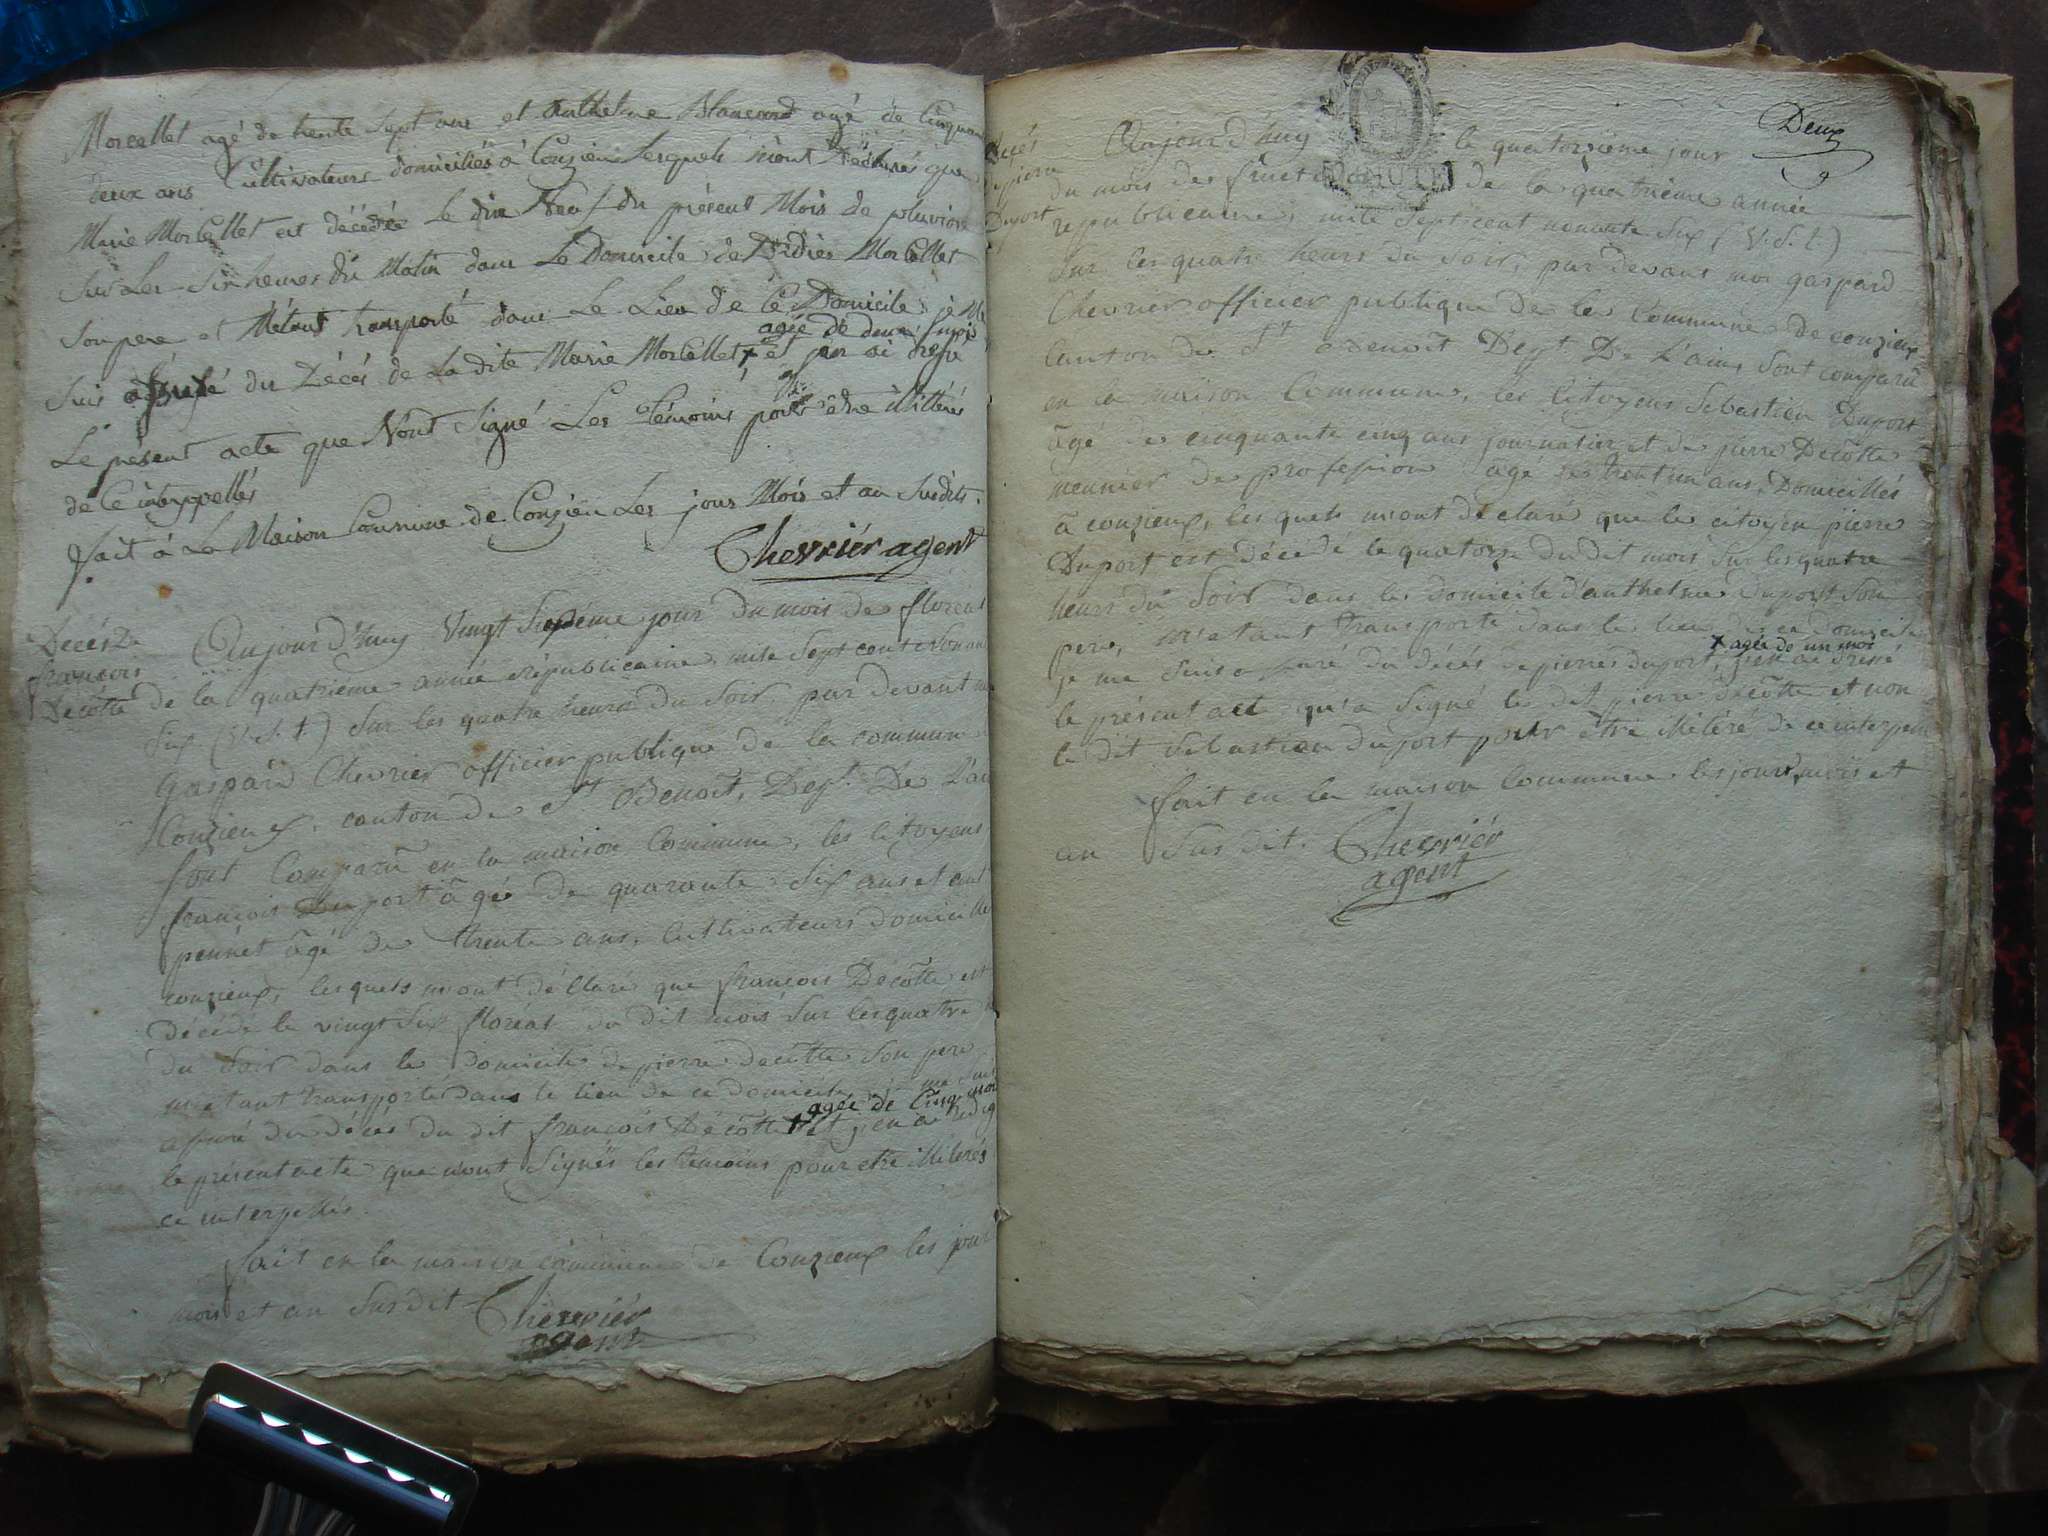 Morcellet agé de trente sept ans et anthelme Blancard agé de Cinquan
deux ans Cultivateurs domiciliés à Conzieu Lesquels mont Déclarés que
Marie Morcellet est décédée Le dix Neuf du présent Mois de pluviose
Sur Les Six heures du Matin dans Le Domicile de Didier Morcellet
Son pere et M'étant transporté dans Le Lieu de Ce Domicile je Me
agée de deux mois
Suis assuré du Décés de La dite Marie Morcellet, et j'en ai dressé
Le présent acte que N'ont Signé Les témoins pour être illitérés
de Ce interppellés
fait à La Maison Commune de Conzieu Les jours Mois et an Susdits.
Chevriér agent
Decés De
françois
Decôtte
Aujourd'huy Vingt Septième jour du mois de floreal
de la quatriéme année républicaine, mile Sept cent Nonan
Six (V.S.t.) Sur les quatre heures du Soir par devant m
gaspard Chevrier officier publique de la commune
Conzieux, canton de St Benoit, Dept. De L'ai
Sont Comparû en la maison Commune, les Citoyens
françois Duport âgé de quarante Six ans et ant
pennet âgé de trente ans, Cultivateurs domicillé
conzieux, lesquels m'ont déClaré que françois Décôtte est
décédé le vingt Six floreal du dit mois Sur les quatre
du Soir dans le domicile de pierre decôtte Son pere
m'étant transporté dans le lieu de ce domicile je me suis
agée de Cinq moi
assuré du décés du dit françois Décôtte et j'en ai redig
le présent acte que n'ont Signés les témoins pour etre illiterés
ce interpellés.
fait en la maison commune de Conzieux les jour
mois et an Susdit
Chevriér
agent
Deux
Decés
pierre
Duport
Aujourd'huy le quatorzieme jour
du mois de fructidor de la quatrieme année
republicaine, mile Sept cent nonante Six (V.S.t.)
Sur les quatre heurs du Soir, par devant moi gaspard
Chevrier officier publique de la Commune de conzieux
Canton de St Benoit Dept De L'ain, Sont comparû
en la maison Commune, les Citoyens Sebastien Duport
âgé de cinquante cinq ans journalier et de pierre Decôtte
meunier de profession age de trent un ans, Domicillés
à conzieux, lesquels m'ont déclaré que le citoyen pierre
Duport est décédé le quatorze du dit mois Sur les quatre
heurs du Soir dans le domicile d'anthelme Duport Son
pere, m'etant transporté dans le lieu de ce domicile
x agée de un moi
je me Suis assuré du décés de pierre duport, j'en ai dressé
le présent acte qu'a Signé le dit pierre decôtte et non
le dit Sebastien duport pour être illitéré de ce interpell
fait en la maison Commune les jours, mois et
an Susdit. Chevriér
agent